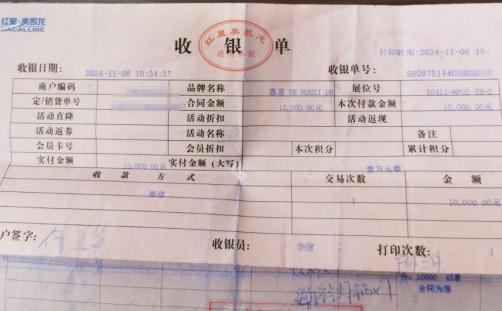 红星·美凯龙
MACALLINE
红星美凯龙
收银单
打印时间:2024-11-08 10:
收银日期: 2024-11-08 10:34:37 收银单号: S028751540
商户编码 品牌名称 慕思 DE RUCCI 展位号
定/销货单号 合同金额 10,000.00元 本次付款金额 10,000.00元
活动直降 活动折扣 活动返现
活动返券 活动名称 备注
会员卡号 会员折扣 本次积分 累计积分
实付金额 10,000.00元 实付金额(大写) 壹万元整
收款方式 交易次数 金额
1 10,000.00元
户签字: 收银员: 打印次数: 1
合同为准